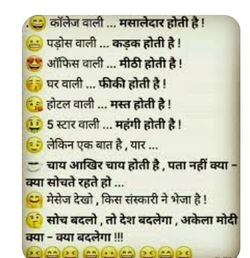 😄 कॉलेज वाली ... मसालेदार होती है !
😬 पड़ोस वाली ... कड़क होती है !
😍 ऑफिस वाली ... मीठी होती है !
😏 घर वाली ... फीकी होती है !
😘 होटल वाली ... मस्त होती है !
🤑 5 स्टार वाली ... महंगी होती है !
😉 लेकिन एक बात है , यार ...
☕ चाय आखिर चाय होती है , पता नहीं क्या –
क्या सोचते रहते हो ...
😄 मेसेज देखो , किस संस्कारी ने भेजा है !
🤔 सोच बदलो , तो देश बदलेगा , अकेला मोदी
क्या – क्या बदलेगा !!!